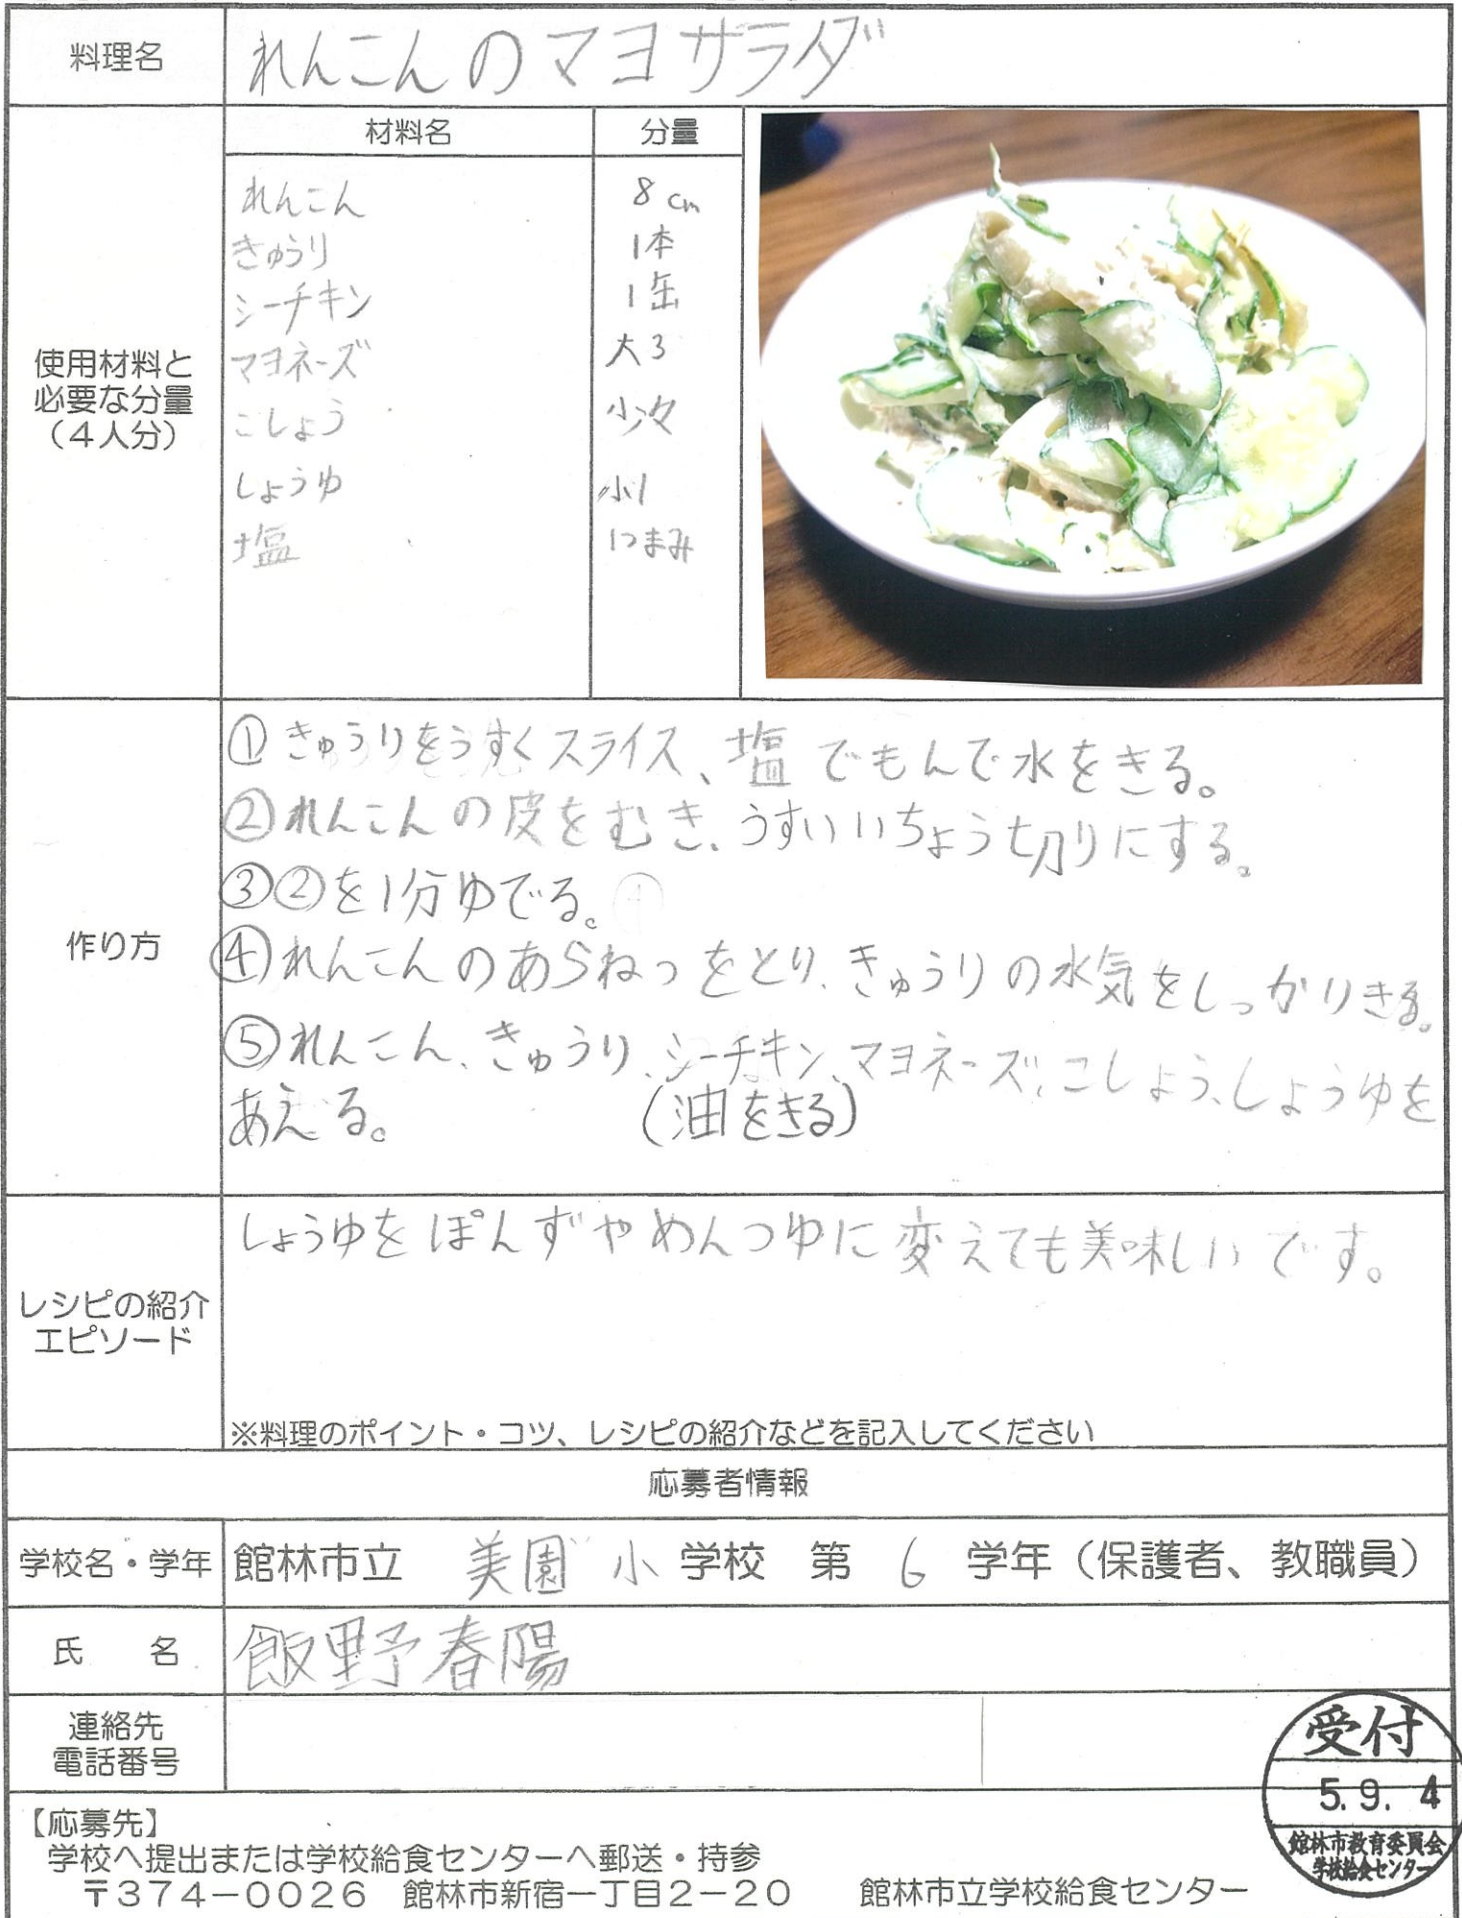 料理名
れんこんのマヨサラダ
材料名
分量
使用材料と
必要な分量
（4人分）
れんこん 8cm
きゅうり 1本
シーチキン 1缶
マヨネーズ 大3
こしょう 少々
しょうゆ 小1
塩 1つまみ
作り方
①きゅうりをうすくスライス、塩でもんで水をきる。
②れんこんの皮をむき、うすいいちょう切りにする。
③②を1分ゆでる。
④れんこんのあらねつをとり、きゅうりの水気をしっかりきる。
⑤れんこん、きゅうり、シーチキン、マヨネーズ、こしょう、しょうゆを
あえる。 （油をきる）
レシピの紹介
エピソード
しょうゆをぽんずやめんつゆに変えても美味しいです。
※料理のポイント・コツ、レシピの紹介などを記入してください
応募者情報
学校名・学年
館林市立 美園小学校 第6学年（保護者、教職員）
氏 名
飯野春陽
連絡先
電話番号
受付
5.9.4
館林市教育委員会
学校給食センター
【応募先】
学校へ提出または学校給食センターへ郵送・持参
〒374－0026 館林市新宿一丁目2－20 館林市立学校給食センター